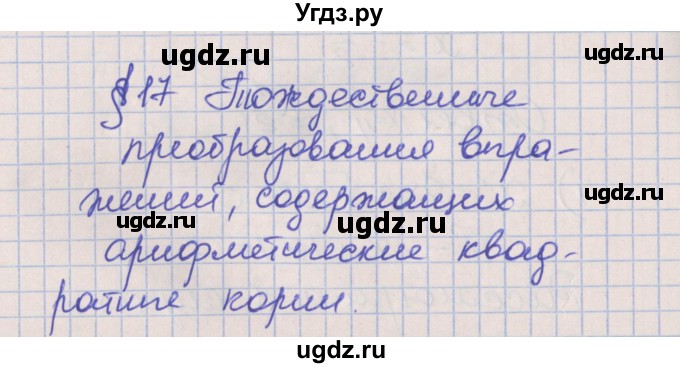 Угдз.ру
ugdz.ru ugdz.ru
§ 17 Тождественные
преобразования выра-
ugdz.ru
жений, содержащих
ugdz.ru
арифметические квад-
ugdz.ru
ратные корни.
ugdz.ru